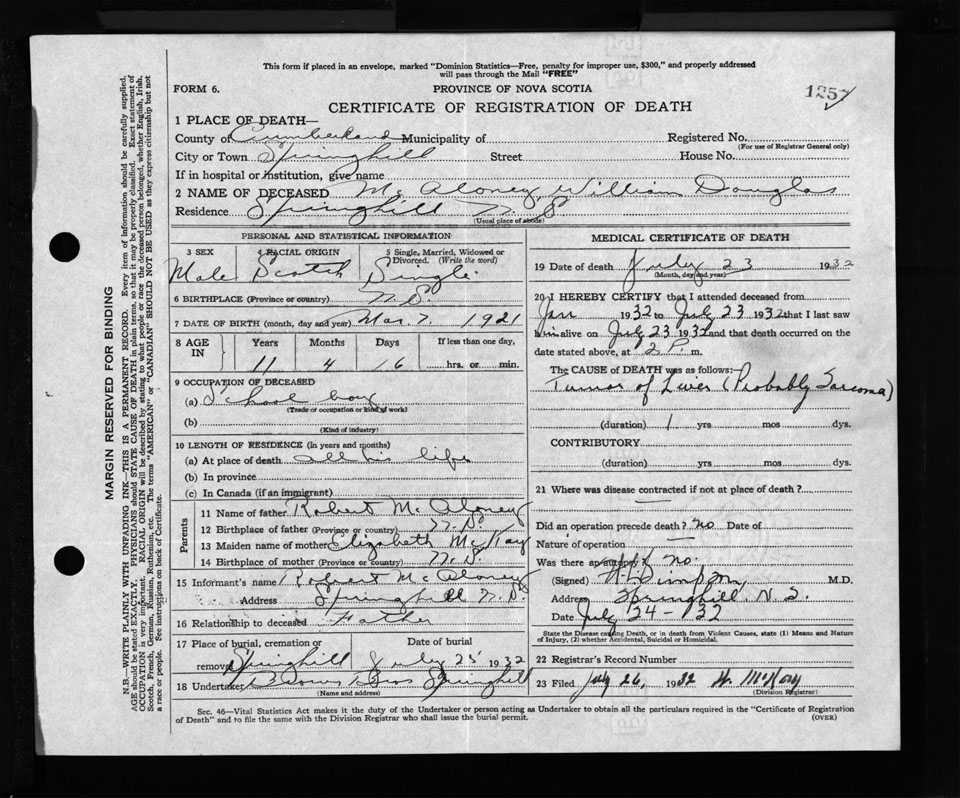 This form if placed in an envelope, marked "Dominion Statistics—Free, penalty for improper use, $300," and properly addressed
will pass through the Mail "FREE"
FORM 6. PROVINCE OF NOVA SCOTIA 1257
CERTIFICATE OF REGISTRATION OF DEATH
1 PLACE OF DEATH—
County of Cumberland Municipality of Registered No.
(For use of Registrar General only)
City or Town Springhill Street House No.
If in hospital or institution, give name
2 NAME OF DECEASED McAloney, William Douglas
Residence Springhill N.S.
(Usual place of abode)
PERSONAL AND STATISTICAL INFORMATION
3 SEX 4 RACIAL ORIGIN 5 Single, Married, Widowed or
Divorced. (Write the word)
Male Scotch Single
6 BIRTHPLACE (Province or country) N.S.
7 DATE OF BIRTH (month, day and year) Mar. 7. 1921
8 AGE IN Years Months Days If less than one day,
11 4 16 hrs. or min.
9 OCCUPATION OF DECEASED
(a) School boy
(Trade or occupation or kind of work)
(b)
(Kind of industry)
10 LENGTH OF RESIDENCE (in years and months)
(a) At place of death all his life
(b) In province
(c) In Canada (if an immigrant)
Parents
11 Name of father Robert McAloney
12 Birthplace of father (Province or country) N.S.
13 Maiden name of mother Elizabeth McKay
14 Birthplace of mother (Province or country) N.S.
15 Informant's name Robert McAloney
Address Springhill N.S.
16 Relationship to deceased Father
17 Place of burial, cremation or Date of burial
removal Springhill July 25 1932
18 Undertaker Bros Springhill
(Name and address)
MEDICAL CERTIFICATE OF DEATH
19 Date of death July 23 1932
(Month, day and year)
20 I HEREBY CERTIFY that I attended deceased from
Jan 1932 to July 23 1932 that I last saw
him alive on July 23 1932 and that death occurred on the
date stated above, at 2 P. m.
The CAUSE OF DEATH was as follows:—
Tumor of Liver (Probably Sarcoma)
(duration) 1 yrs mos dys.
CONTRIBUTORY
(duration) yrs mos dys.
21 Where was disease contracted if not at place of death?
Did an operation precede death? no Date of
Nature of operation —
Was there an autopsy? no.
(Signed) M.D.
Address Springhill, N.S.
Date July 24 - 32
State the Disease causing Death, or in death from Violent Causes, state (1) Means and Nature
of Injury, (2) whether Accidental, Suicidal or Homicidal.
22 Registrar's Record Number
23 Filed July 26, 1932 W. McKay
(Division Registrar)
Sec. 46—Vital Statistics Act makes it the duty of the Undertaker or person acting as Undertaker to obtain all the particulars required in the "Certificate of Registration
of Death" and to file the same with the Division Registrar who shall issue the burial permit. (OVER)
MARGIN RESERVED FOR BINDING
N.B.—WRITE PLAINLY WITH UNFADING INK—THIS IS A PERMANENT RECORD. Every item of information should be carefully supplied.
AGE should be stated EXACTLY. PHYSICIANS should STATE CAUSE OF DEATH in plain terms, so that it may be properly classified. Exact statement of
OCCUPATION is very important. RACIAL ORIGIN will be described by stating to what people or race the deceased person belonged, whether English, Irish,
Scotch, French, German, Russian, Ruthenian, etc. The terms "AMERICAN" or "CANADIAN" SHOULD NOT BE USED as they express citizenship but not
a race or people. See instructions on back of Certificate.